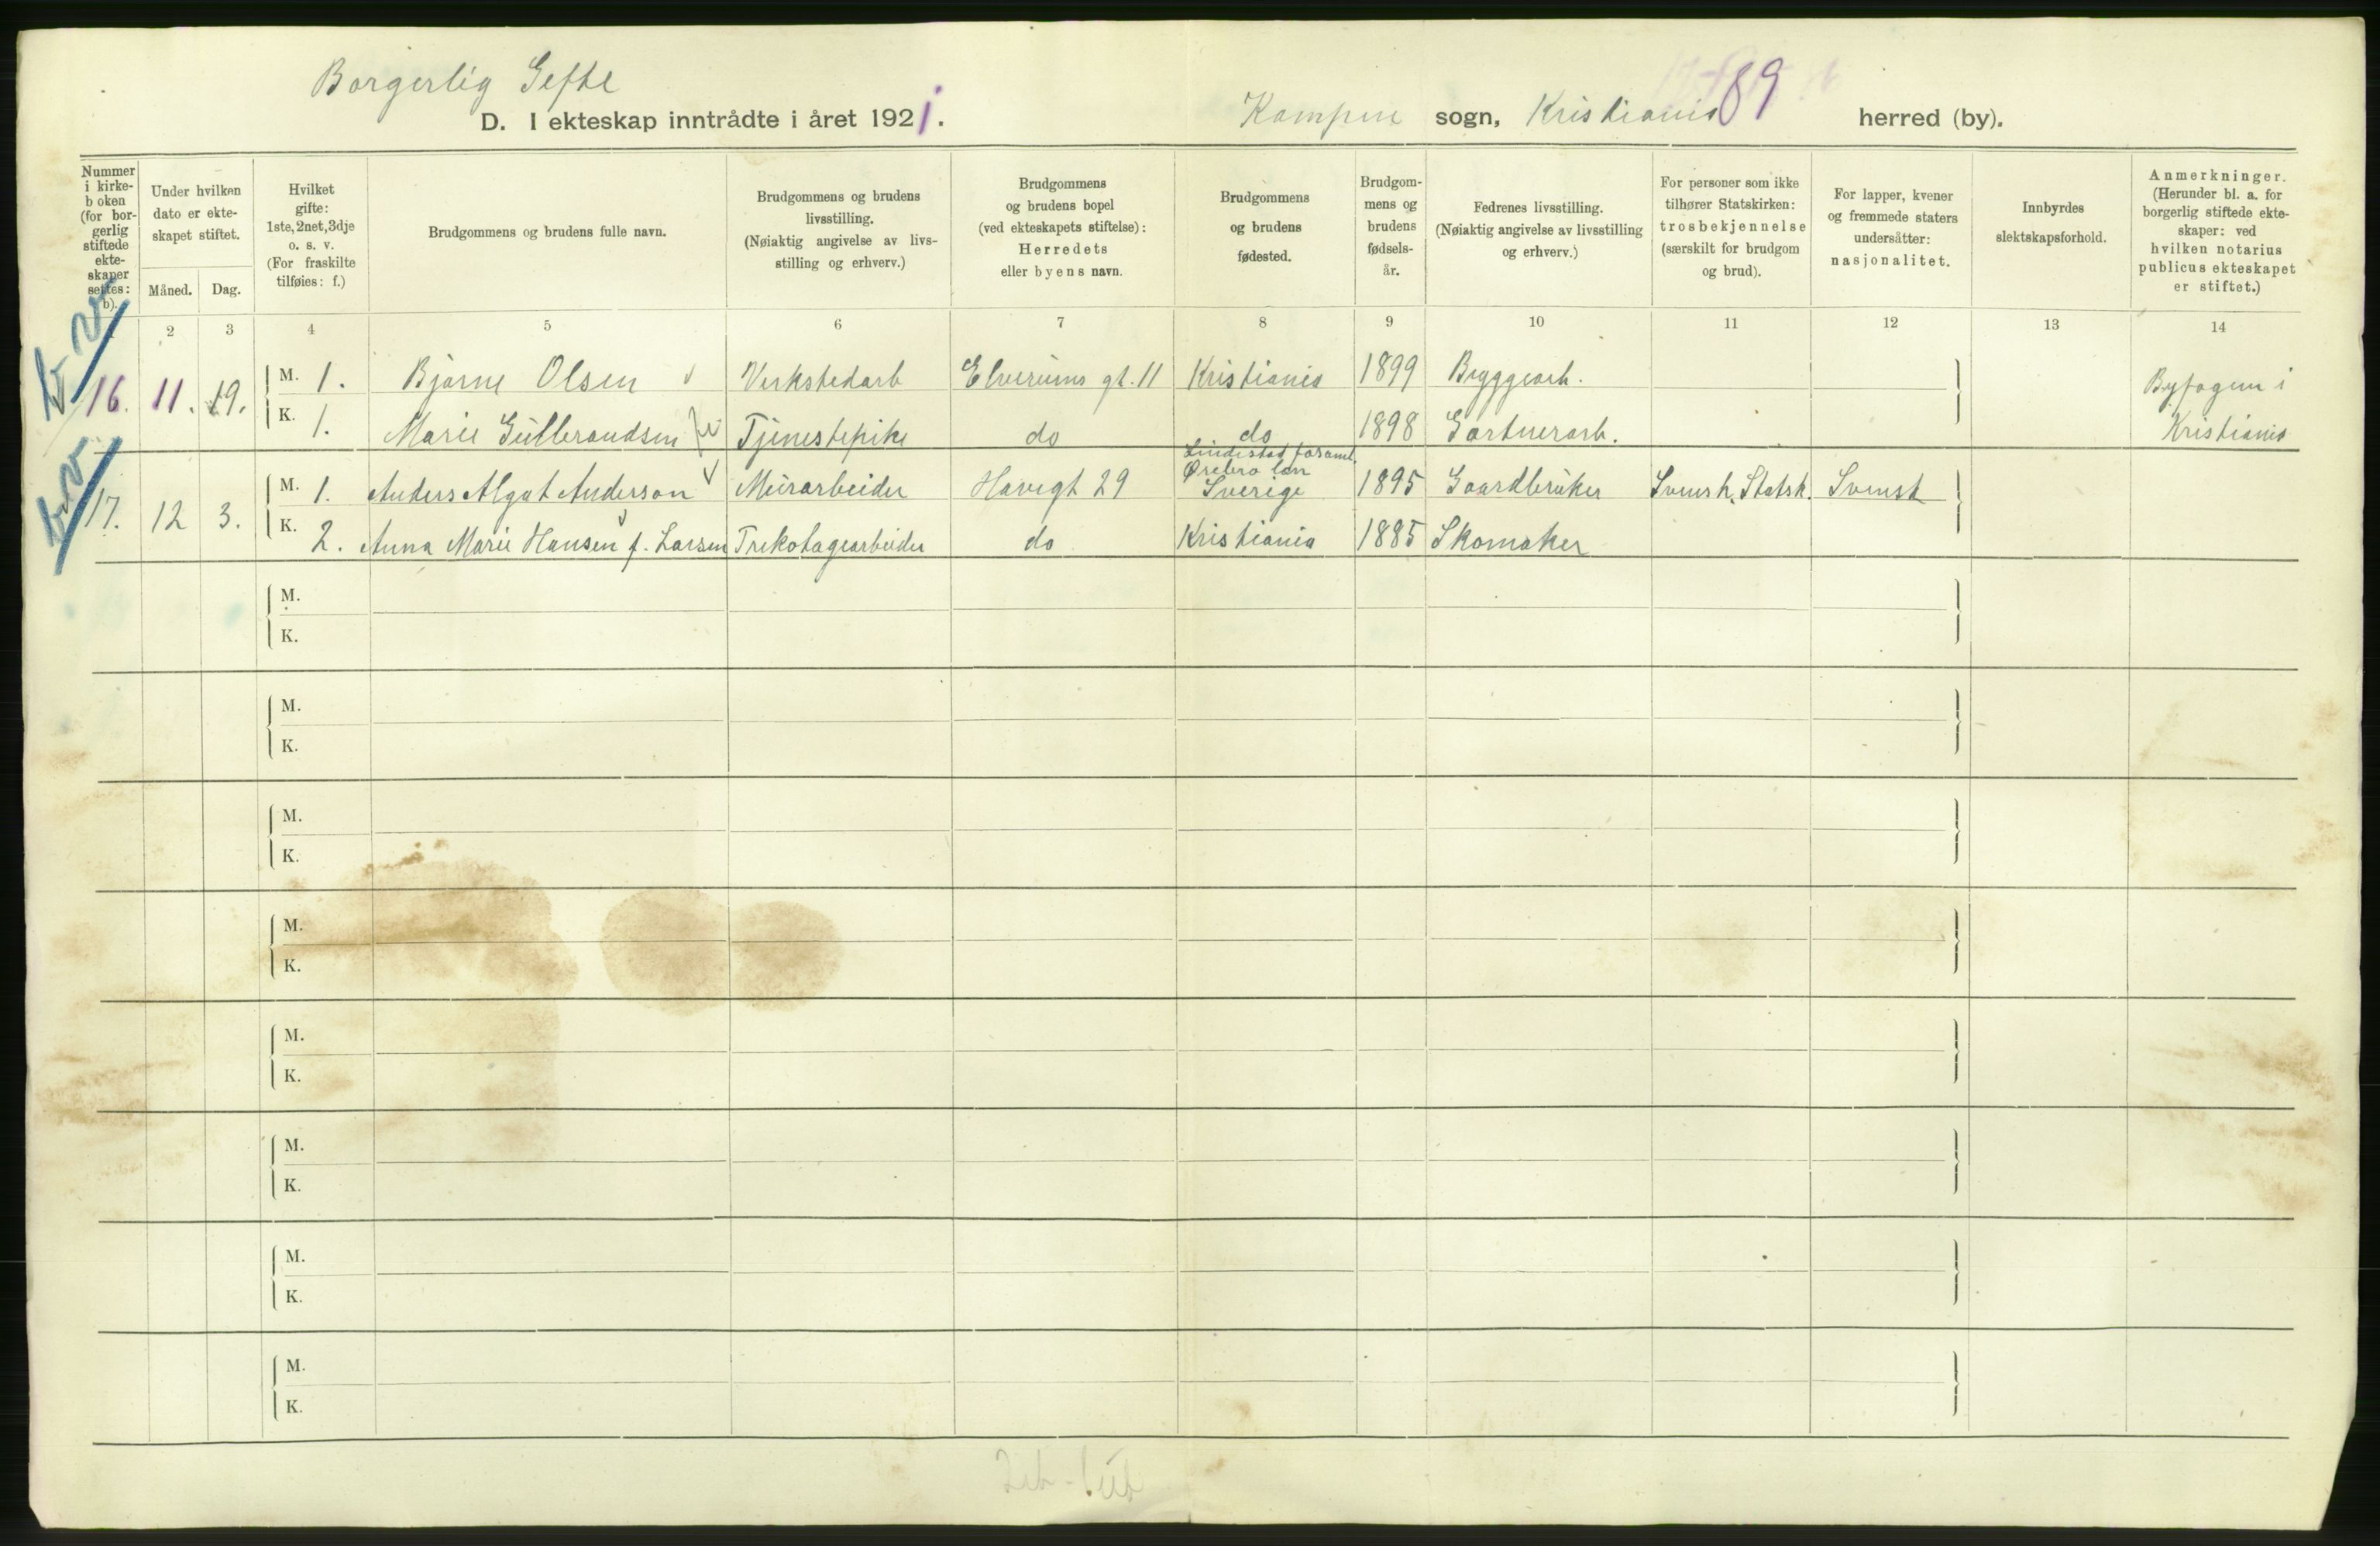 Borgerlig Gifte
D. I ekteskap inntrådte i året 1921. Kampen sogn, Kristiania 89 herred (by).
Nummer i kirke- boken (for bor- gerlig stiftede ekte- skaper settes: b).
Under hvilken dato er ekte- skapet stiftet.
Måned. Dag.
Hvilket gifte: 1ste, 2net, 3dje o. s. v. (For fraskilte tilføies: f.)
Brudgommens og brudens fulle navn.
Brudgommens og brudens livsstilling. (Nøiaktig angivelse av livs- stilling og erhverv.)
Brudgommens og brudens bopel (ved ekteskapets stiftelse): Herredets eller byens navn.
Brudgommens og brudens fødested.
Brudgom- mens og brudens fødsels- år.
Fedrenes livsstilling. (Nøiaktig angivelse av livsstilling og erhverv.)
For personer som ikke tilhører Statskirken: trosbekjennelse (særskilt for brudgom og brud).
For lapper, kvener og fremmede staters undersåtter: nasjonalitet.
Innbyrdes slektskapsforhold.
Anmerkninger. (Herunder bl. a. for borgerlig stiftede ekte- skaper: ved hvilken notarius publicus ekteskapet er stiftet.)
2 3 4 5 6 7 8 9 10 11 12 13 14
16. 11. 19. M. 1. Bjarne Olsen Verkstedarb Elverums gt. 11 Kristiania 1899 Bryggearb. Byfogen i
K. 1. Marie Gulbrandsen Tjenestepike do do 1898 Gartnerarb. Kristiania
Lindestad forsaml.
Ørebro län
17. 12 3. M. 1. Anders Algot Anderson Murarbeider Havegt 29 Sverige 1895 Gaardbruker Svensk. Statsk. Svensk
K. 2. Anna Marie Hansen f. Larsen Trikotagearbeider do Kristiania 1885 Skomaker
M.
K.
M.
K.
M.
K.
M.
K.
M.
K.
M.
K.
M.
K.
M.
K.